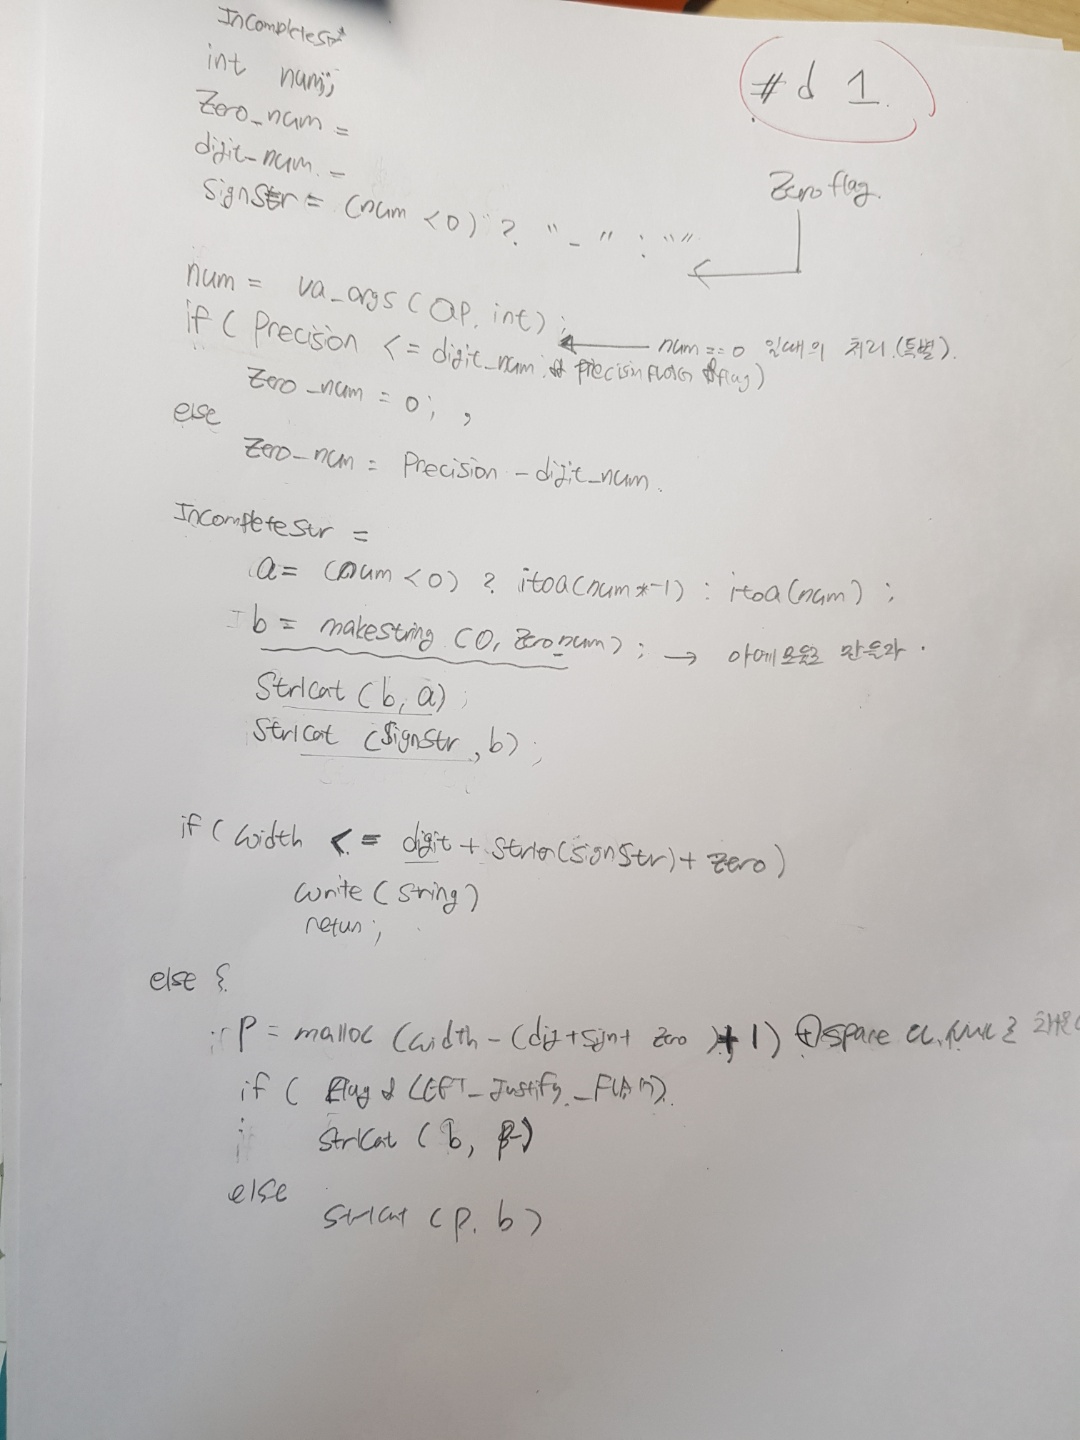 IncompleteStr
# d 1.
int num;
Zero_num =
digit_num. =
Zero flag.
SignStr = (num < 0) ? "-" : ""
num = va_args (ap, int) ;
num == 0 일때의 처리.(특별).
if ( Precision <= digit_num flag)
Zero_num = 0; ,
else
Zero_num = Precision - digit_num.
IncompleteStr =
a = (num < 0) ? itoa(num*-1) : itoa(num) ;
b = makestring (0, zero_num) ; →
Strlcat (b, a) ;
Strlcat (SignStr, b) ;
if ( width <= digit + strlen(SignStr) + zero )
write ( string )
retun ;
else {
P = malloc (width - (dig + sign + zero ) + 1) ⊕ space
if ( Flag & LEFT_Justify_FLAG)
strlcat ( b, p )
else
strlcat ( p, b )